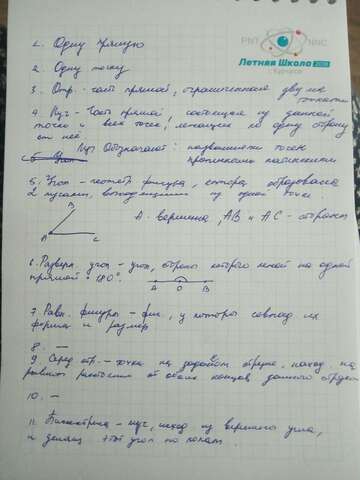 PNPI NNC
Летняя Школа 2018
г. Курчатов
1. Одну прямую
2. Одну точку
3. Отр. - часть прямой, ограниченная двумя
точками
4. Луч - часть прямой состоящая из данной
точки и всех точек, лежащих по одну сторону
от неё
Луч Обозначают: названиями точек
5. Угол - геометр. фигура, которая образована
2 лучами, выходящими из одной точки.
B
A C
A - вершина, AB и AC - стороны
6. Разверн. угол - угол, стороны которого лежат на одной
прямой = 180°.
A O B
7. Равн. фигуры - фиг., у которых совпад. их
форма и размер
8. —
9. Серед. отр. - точка на заданном отрезке, наход. на
равном расстоянии от обоих концов данного отрезка
10. —
11. Биссектриса - луч, исход. из вершины угла,
и делящ. этот угол по полам.